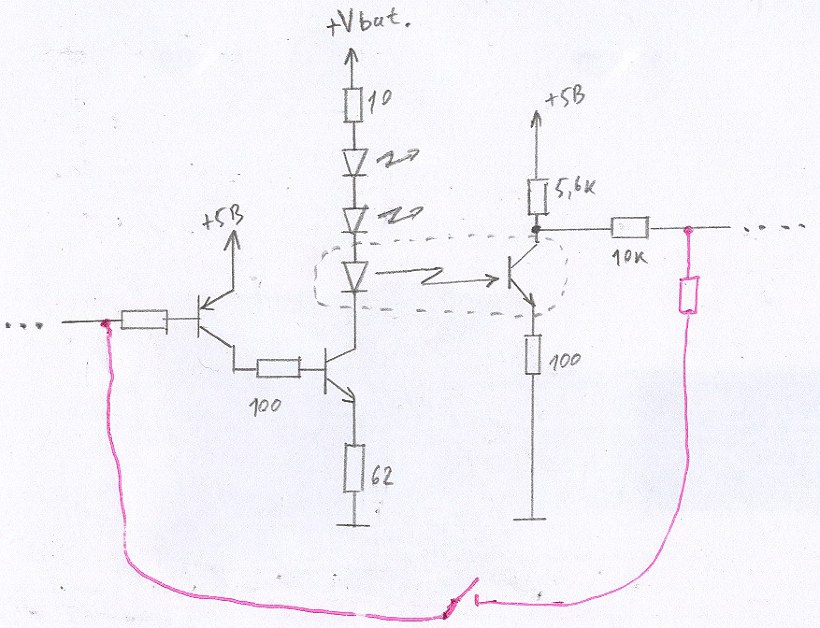 +Vbat.
10
+5В
5,6к
+5В
10к
100
100
62